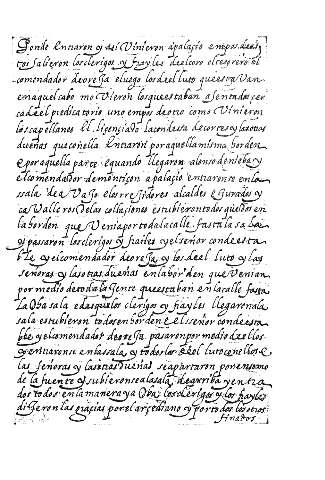 Donde entraron y asi vinieron a palacio en pos destos
salieron los clerigos y frayles de el coro el tesorero el
comendador de oreja e luego los de el luto que estavan
en aquel cabo movieron los que estaban asentados cer
ca de el predicatorio uno en pos de otro como vinieron
los capellanes el licenciado la condesa de cortes y las otras
dueñas que con ella entraron por aquella misma borden
e por aquella parte e quando llegaron alonso de
el comendador de montiçon a palacio entraron en la
sala de avajo e los rrejidores alcaldes e jurados y
cavalleros de las collaciones estubieron todos quedos en
la borden que venia por toda la calle fasta la sala
y pasaron los clerigos y frailes y el señor condesta
ble y el comendador de oreja y los de el luto y las
señoras y las otras dueñas en la borden que venian
por medio de toda la gente que estaban en la calle fasta
la oba sala e despues los clerigos y frayles llegaron a la
sala estubieron todos en borden e el señor condesta
ble y el comendador de oreja pasaron por medio de ellos
y entraron se en la sala y todos los de el luto con ellos e
las señoras y las otras dueñas se apartaron por en somo
de la fuente y subieron se a la sala de arriba y entra
dos todos en la manera ya oba los clerigos y los frayles
dijeron las gracias por el arcediano y por todos los otros
finados